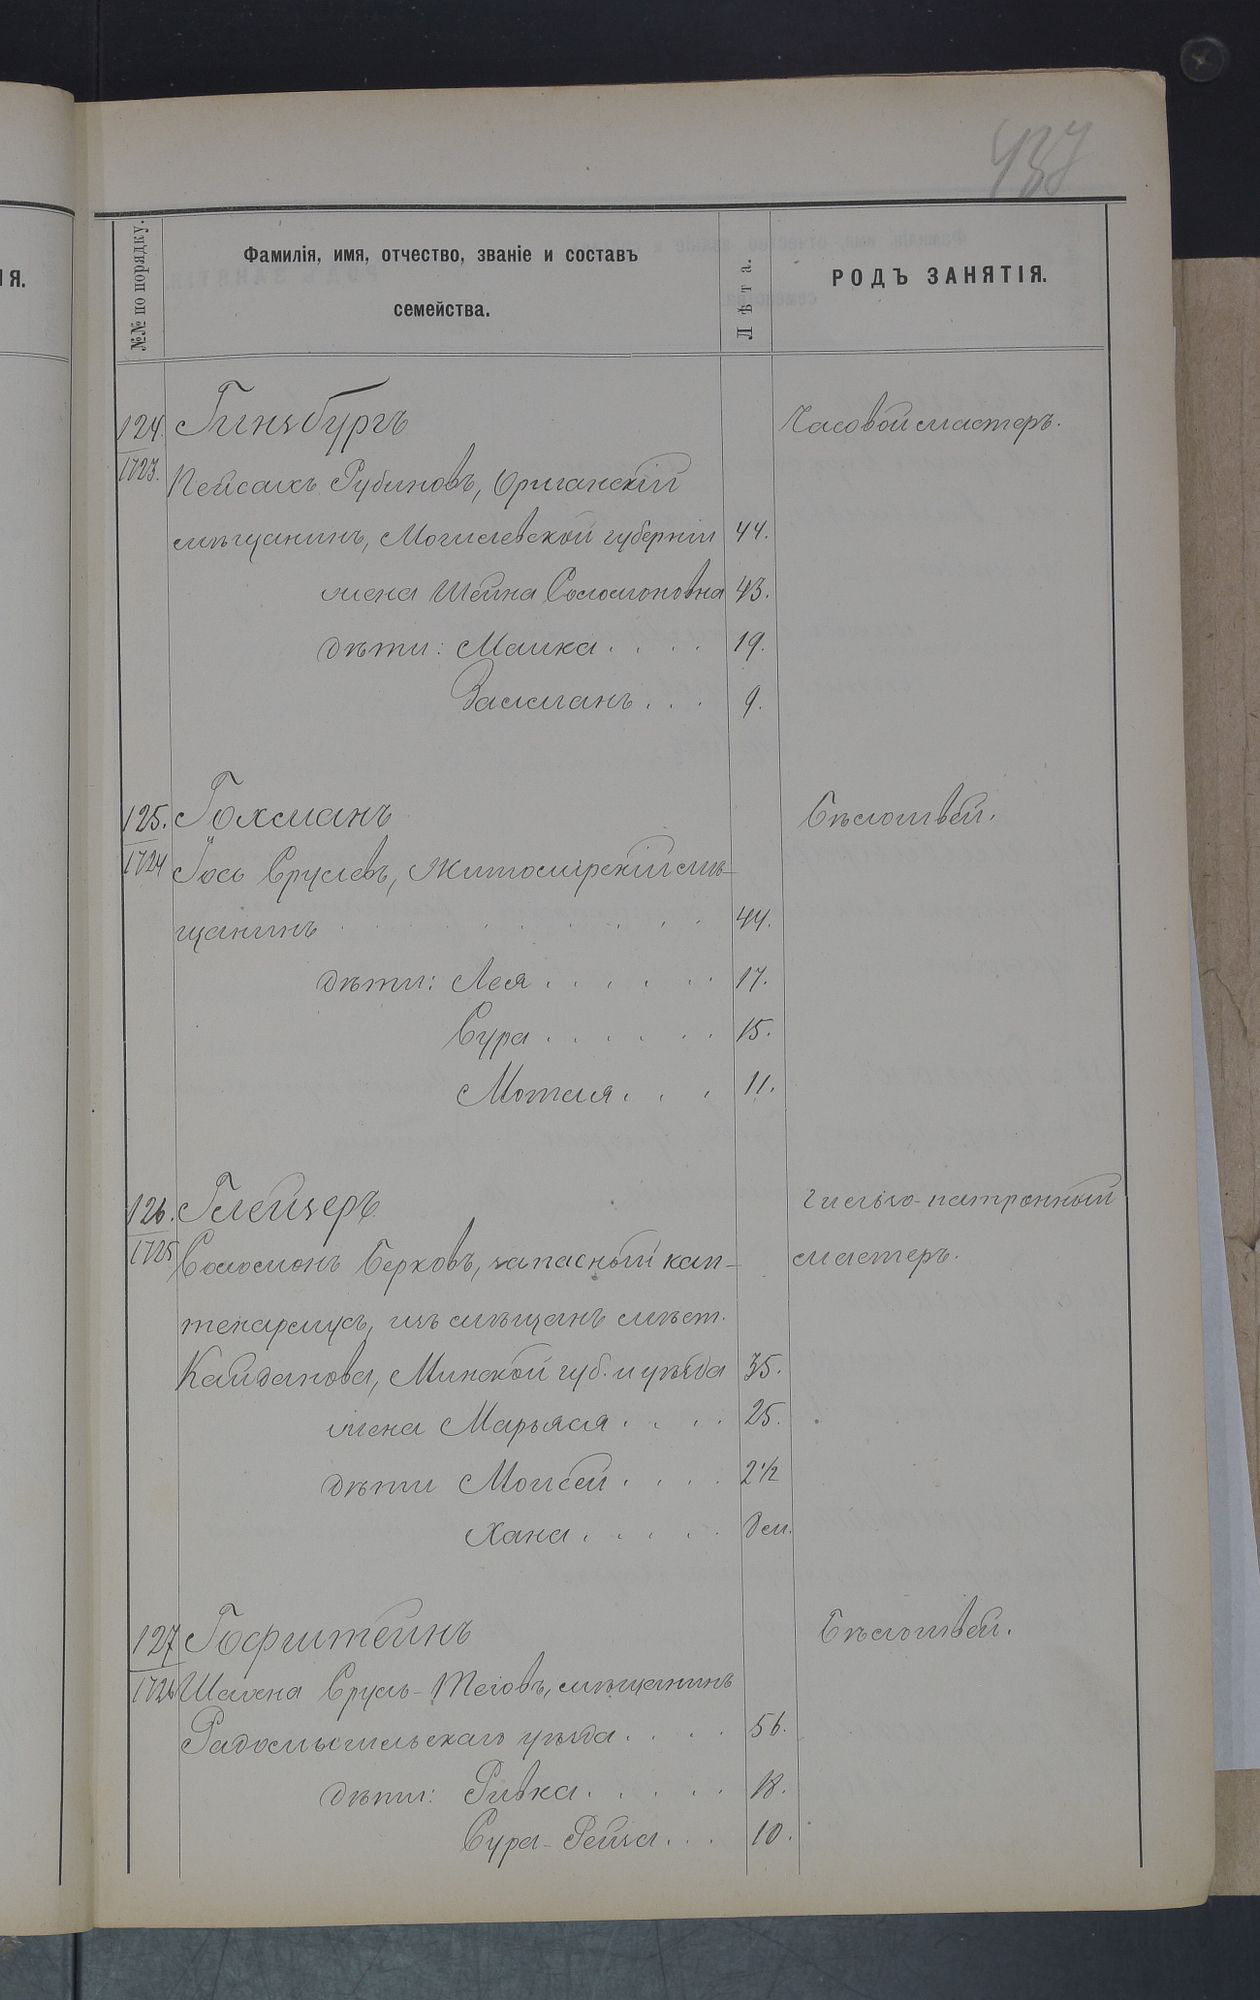 437
ІЯ.
№№ по порядку.
Фамилія, имя, отчество, званіе и составъ
семейства.
Лѣта.
РОДЪ ЗАНЯТІЯ.
124. Гинзбургъ Часовой мастеръ.
1723.
Пейсахъ Рубиновъ, Оршанскій
мѣщанинъ, Могилевской губерніи 44.
жена Шейна Соломоновна 43.
дѣти: Малка . . . . 19.
Залманъ . . . 9.
125. Гохманъ Бѣлошвей.
1724
Іось Срулевъ, Житомірскій мѣ-
щанинъ . . . . . . . . 44.
дѣти: Лея . . . . . . 17.
Сура . . . . . . 15.
Мотля . . . 11.
126. Глейзеръ Гильзо-патронный
1725
Соломонъ Берковъ, запасный кап- мастеръ.
тенармусъ, изъ мѣщанъ мѣст.
Кайданова, Минской губ. и уѣзда 35.
жена Марьяся . . . . 25.
дѣти Моисей . . . . 2 1/2
Хана . . . . .
127 Гофштейнъ Бѣлошвей.
1726
Шахна Сруль- мѣщанинъ
Радомысльскаго уѣзда . . . . 56.
дѣти: Ривка . . . . . 18.
Сура-Рейза . . . 10.